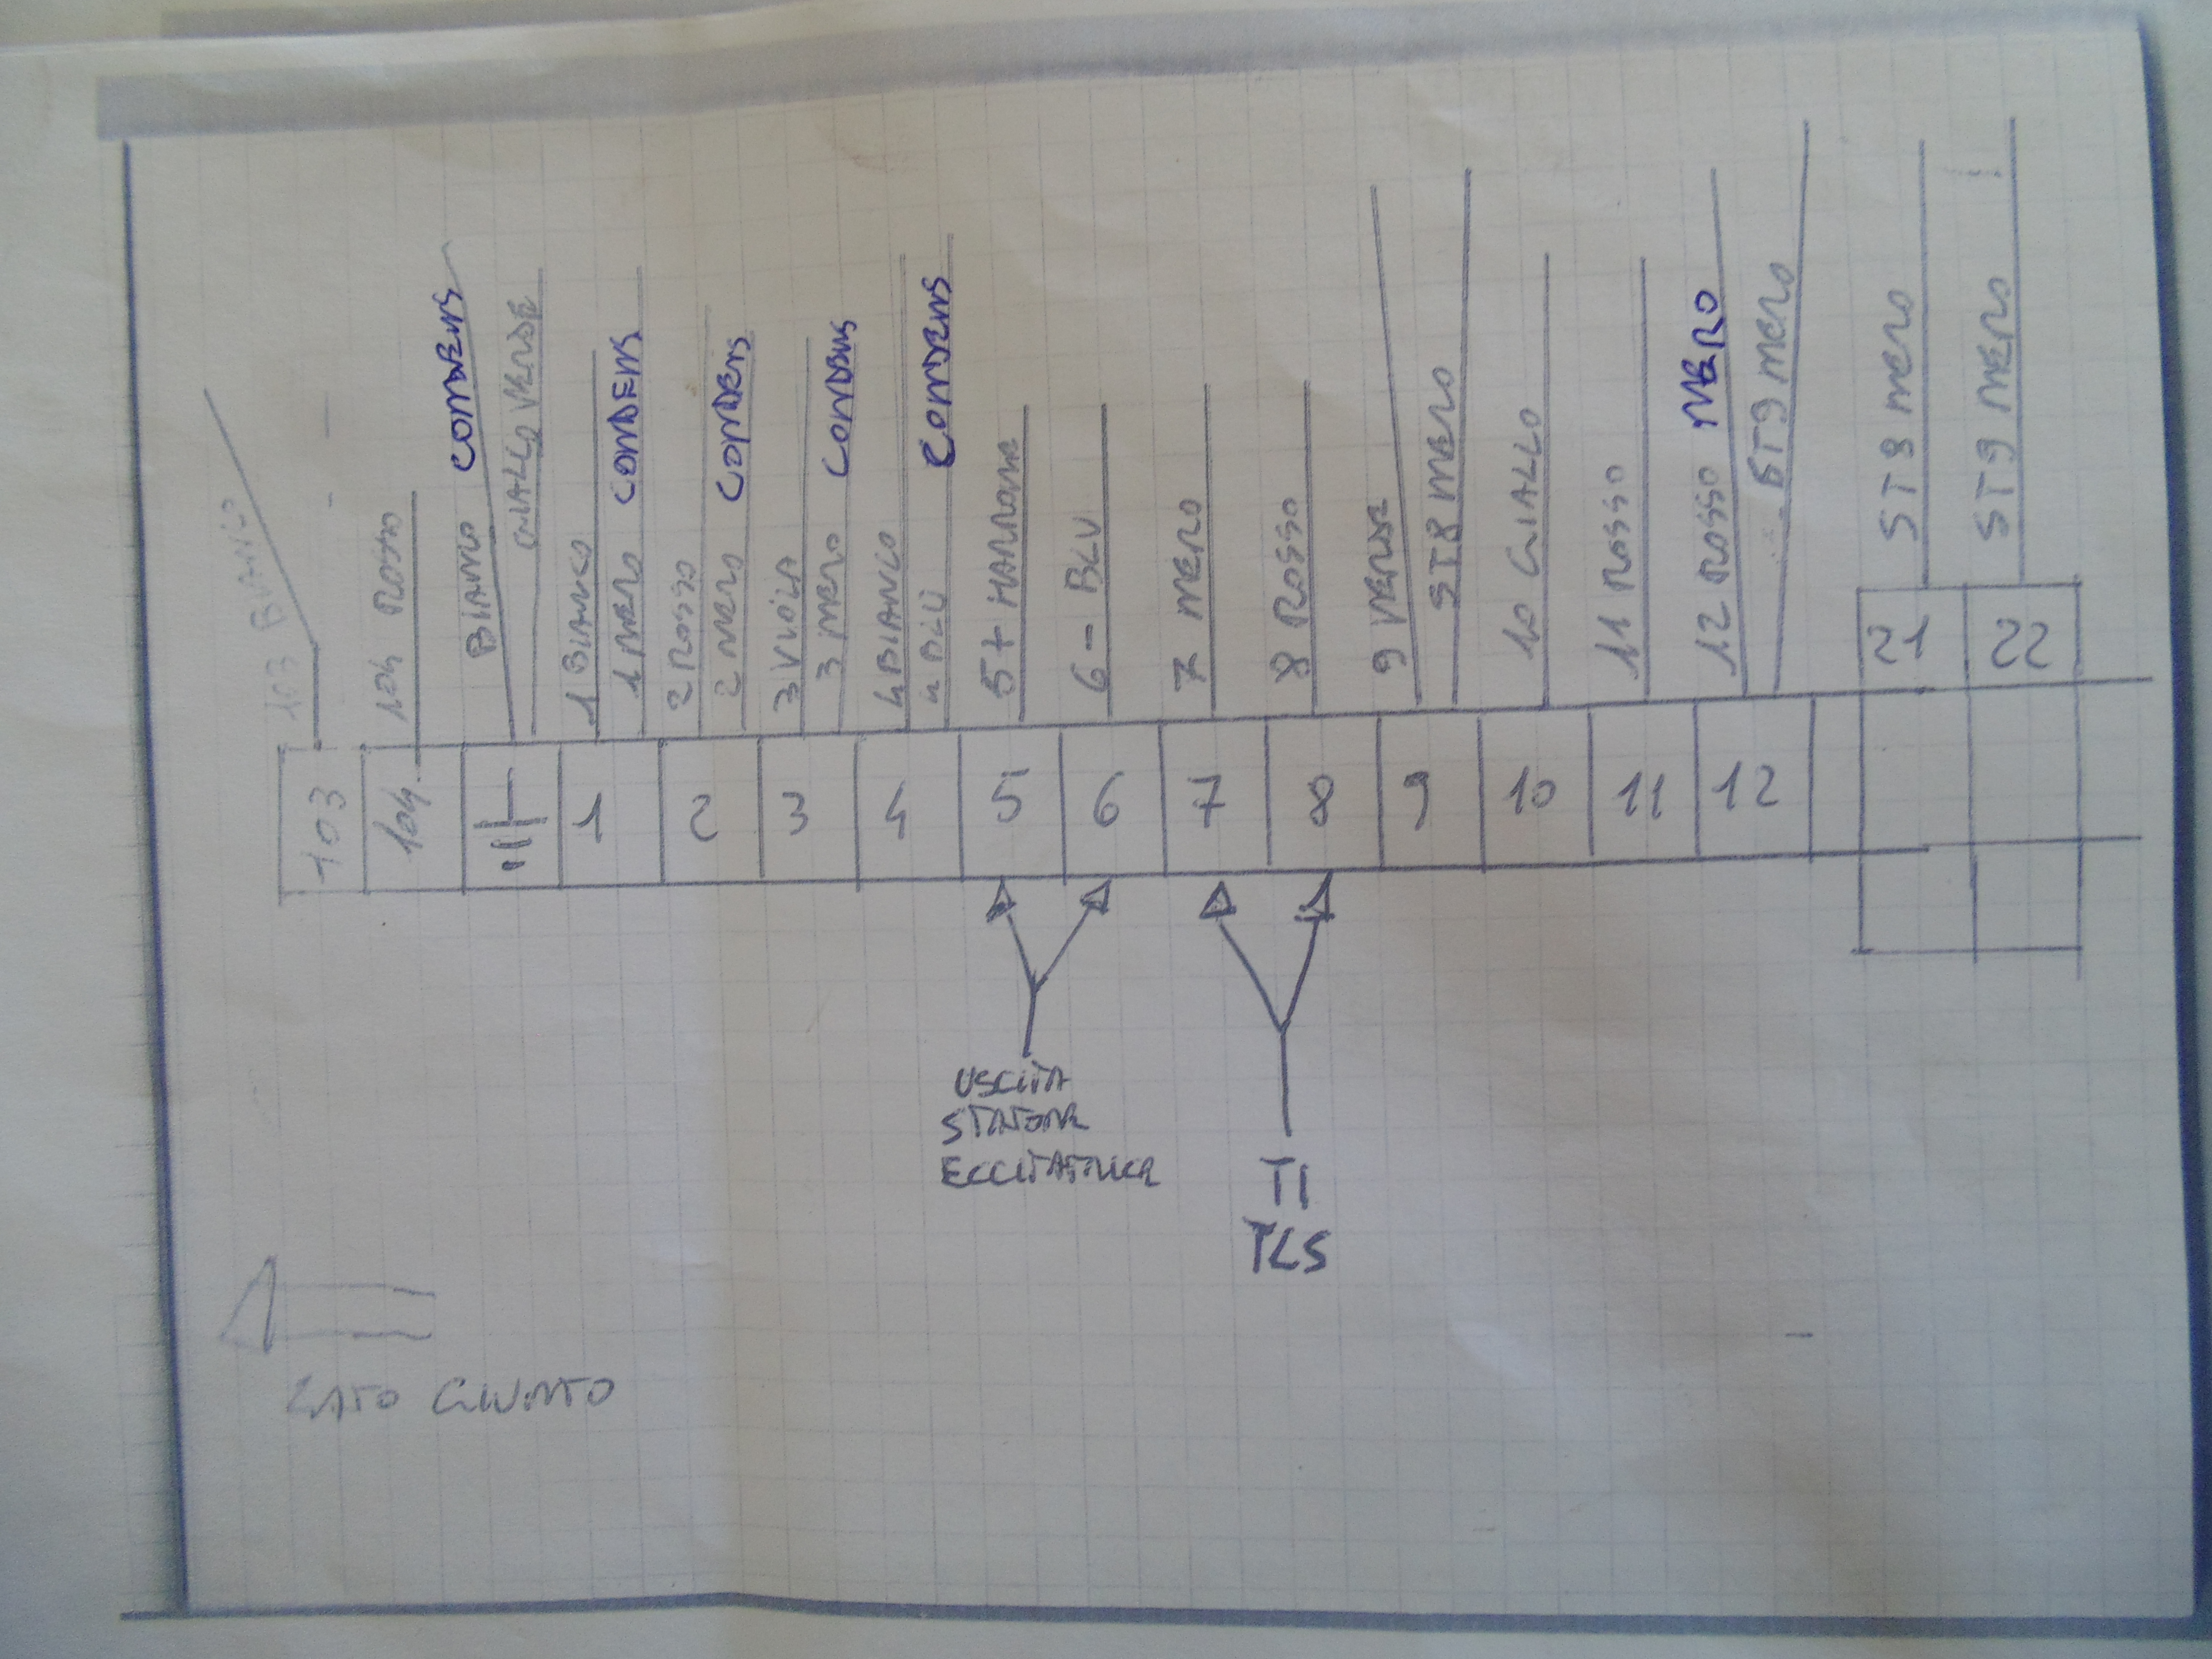 103 BIANCO
104 ROSSO
BIANCO CONDENS
GIALLO VERDE
1 BIANCO
1 NERO CONDENS
2 ROSSO
2 NERO CONDENS
3 VIOLA
3 NERO CONDENS
4 BIANCO
4 BLU CONDENS
5 + MARRONE
6 - BLU
7 NERO
8 ROSSO
9 VERDE
ST8 NERO
10 GIALLO
11 ROSSO
12 ROSSO NERO
ST9 NERO
ST8 NERO
ST9 NERO
21
22
103
104
1
2
3
4
5
6
7
8
9
10
11
12
USCITA
STATORE
ECCITATRICE
TI
TLS
LATO GIUNTO